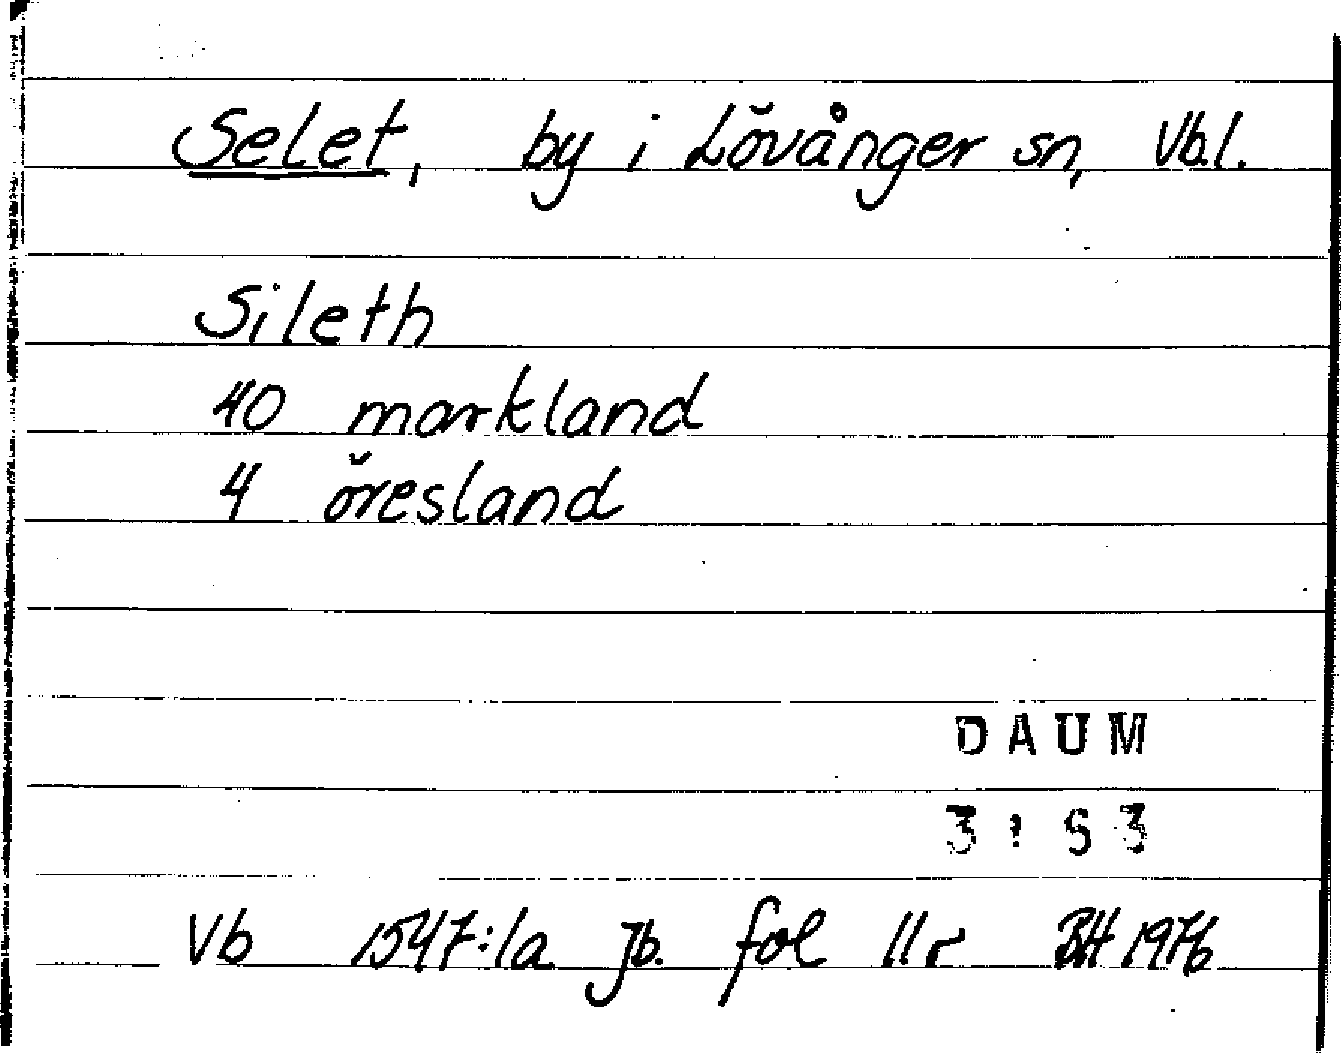 Selet, by i Lövånger sn, Vb.l.
Sileth
40 markland
4 öresland
DAUM
3:53
Vb 1547:1a Jb. fol 11r BH 1976